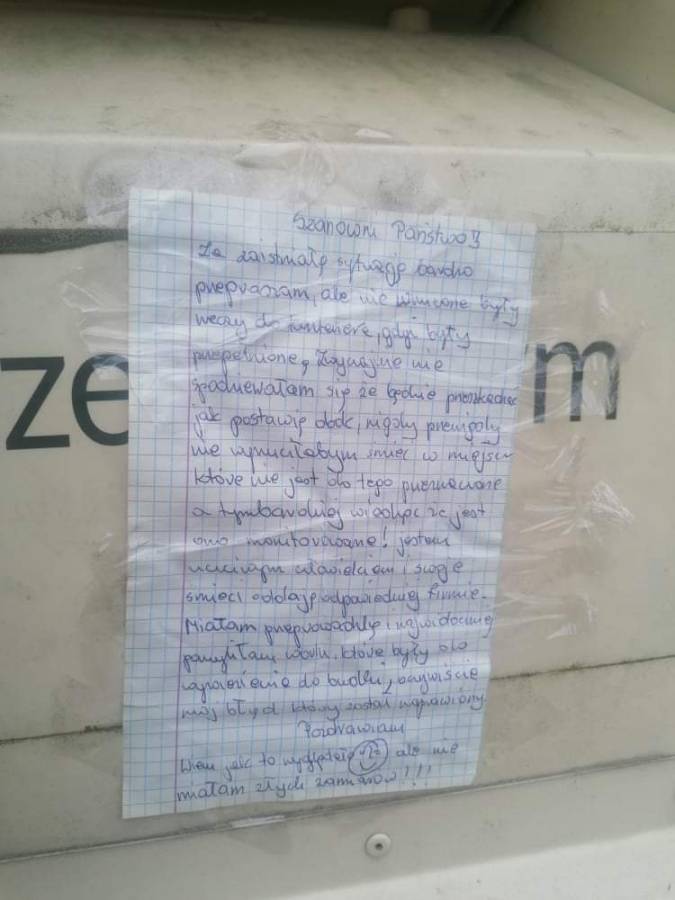 Szanowni Państwo!
Za zaistniałą sytuację bardzo
przepraszam, ale nie wrzucone były
rzeczy do kontenera, gdyż były
przepełnione, zwyczajnie nie
spodziewałam się że będzie przeszkadzać
jak postawię obok, nigdy przenigdy
nie wyrzuciłabym śmieć w miejscu
które nie jest do tego przeznaczone
a tymbardziej widząc że jest
ono monitorowane! jestem
uczciwym człowiekiem i swoje
śmieci oddaję odpowiedniej firmie.
Miałam przeprowadzkę i najwidoczniej
pomyliłam worki, które były do
wywiezienia do budki, oczywiście
mój błąd który został naprawiony.
Pozdrawiam
Wiem jak to wyglądało ale nie
miałam złych zamiarów!!!
ze
m